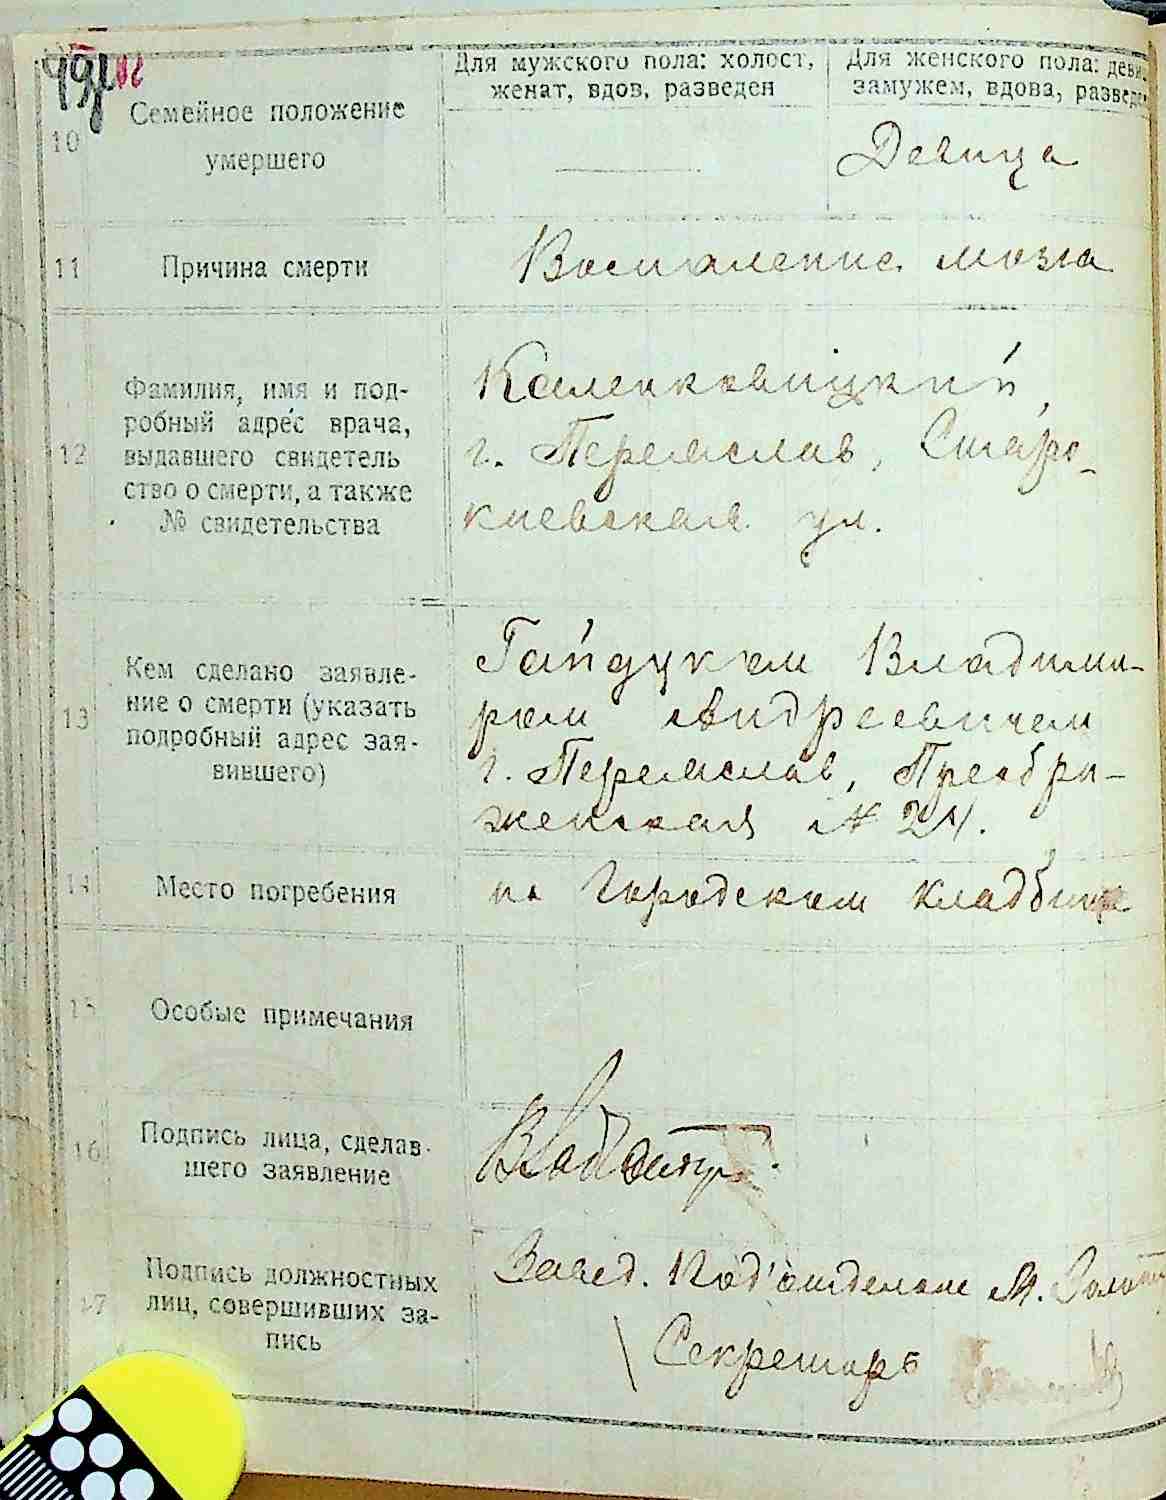 Для мужского пола: холост,
женат, вдов, разведен
Для женского пола: деви
замужем, вдова, разведе
10
Семейное положение
умершего
Девица
11
Причина смерти
Воспаление мозга
12
Фамилия, имя и под-
робный адрес врача,
выдавшего свидетель
ство о смерти, а также
№ свидетельства
г. Переяслав, Старо-
киевская ул.
13
Кем сделано заявле-
ние о смерти (указать
подробный адрес зая-
вившего)
Гайдуком Владими-
ром Андреевичем
г. Переяслав, Преобра-
женская № 24.
14
Место погребения
на Городском кладбище
15
Особые примечания
16
Подпись лица, сделав-
шего заявление
17
Подпись должностных
лиц, совершивших за-
пись
Завед. Под'отделом
Секретарь